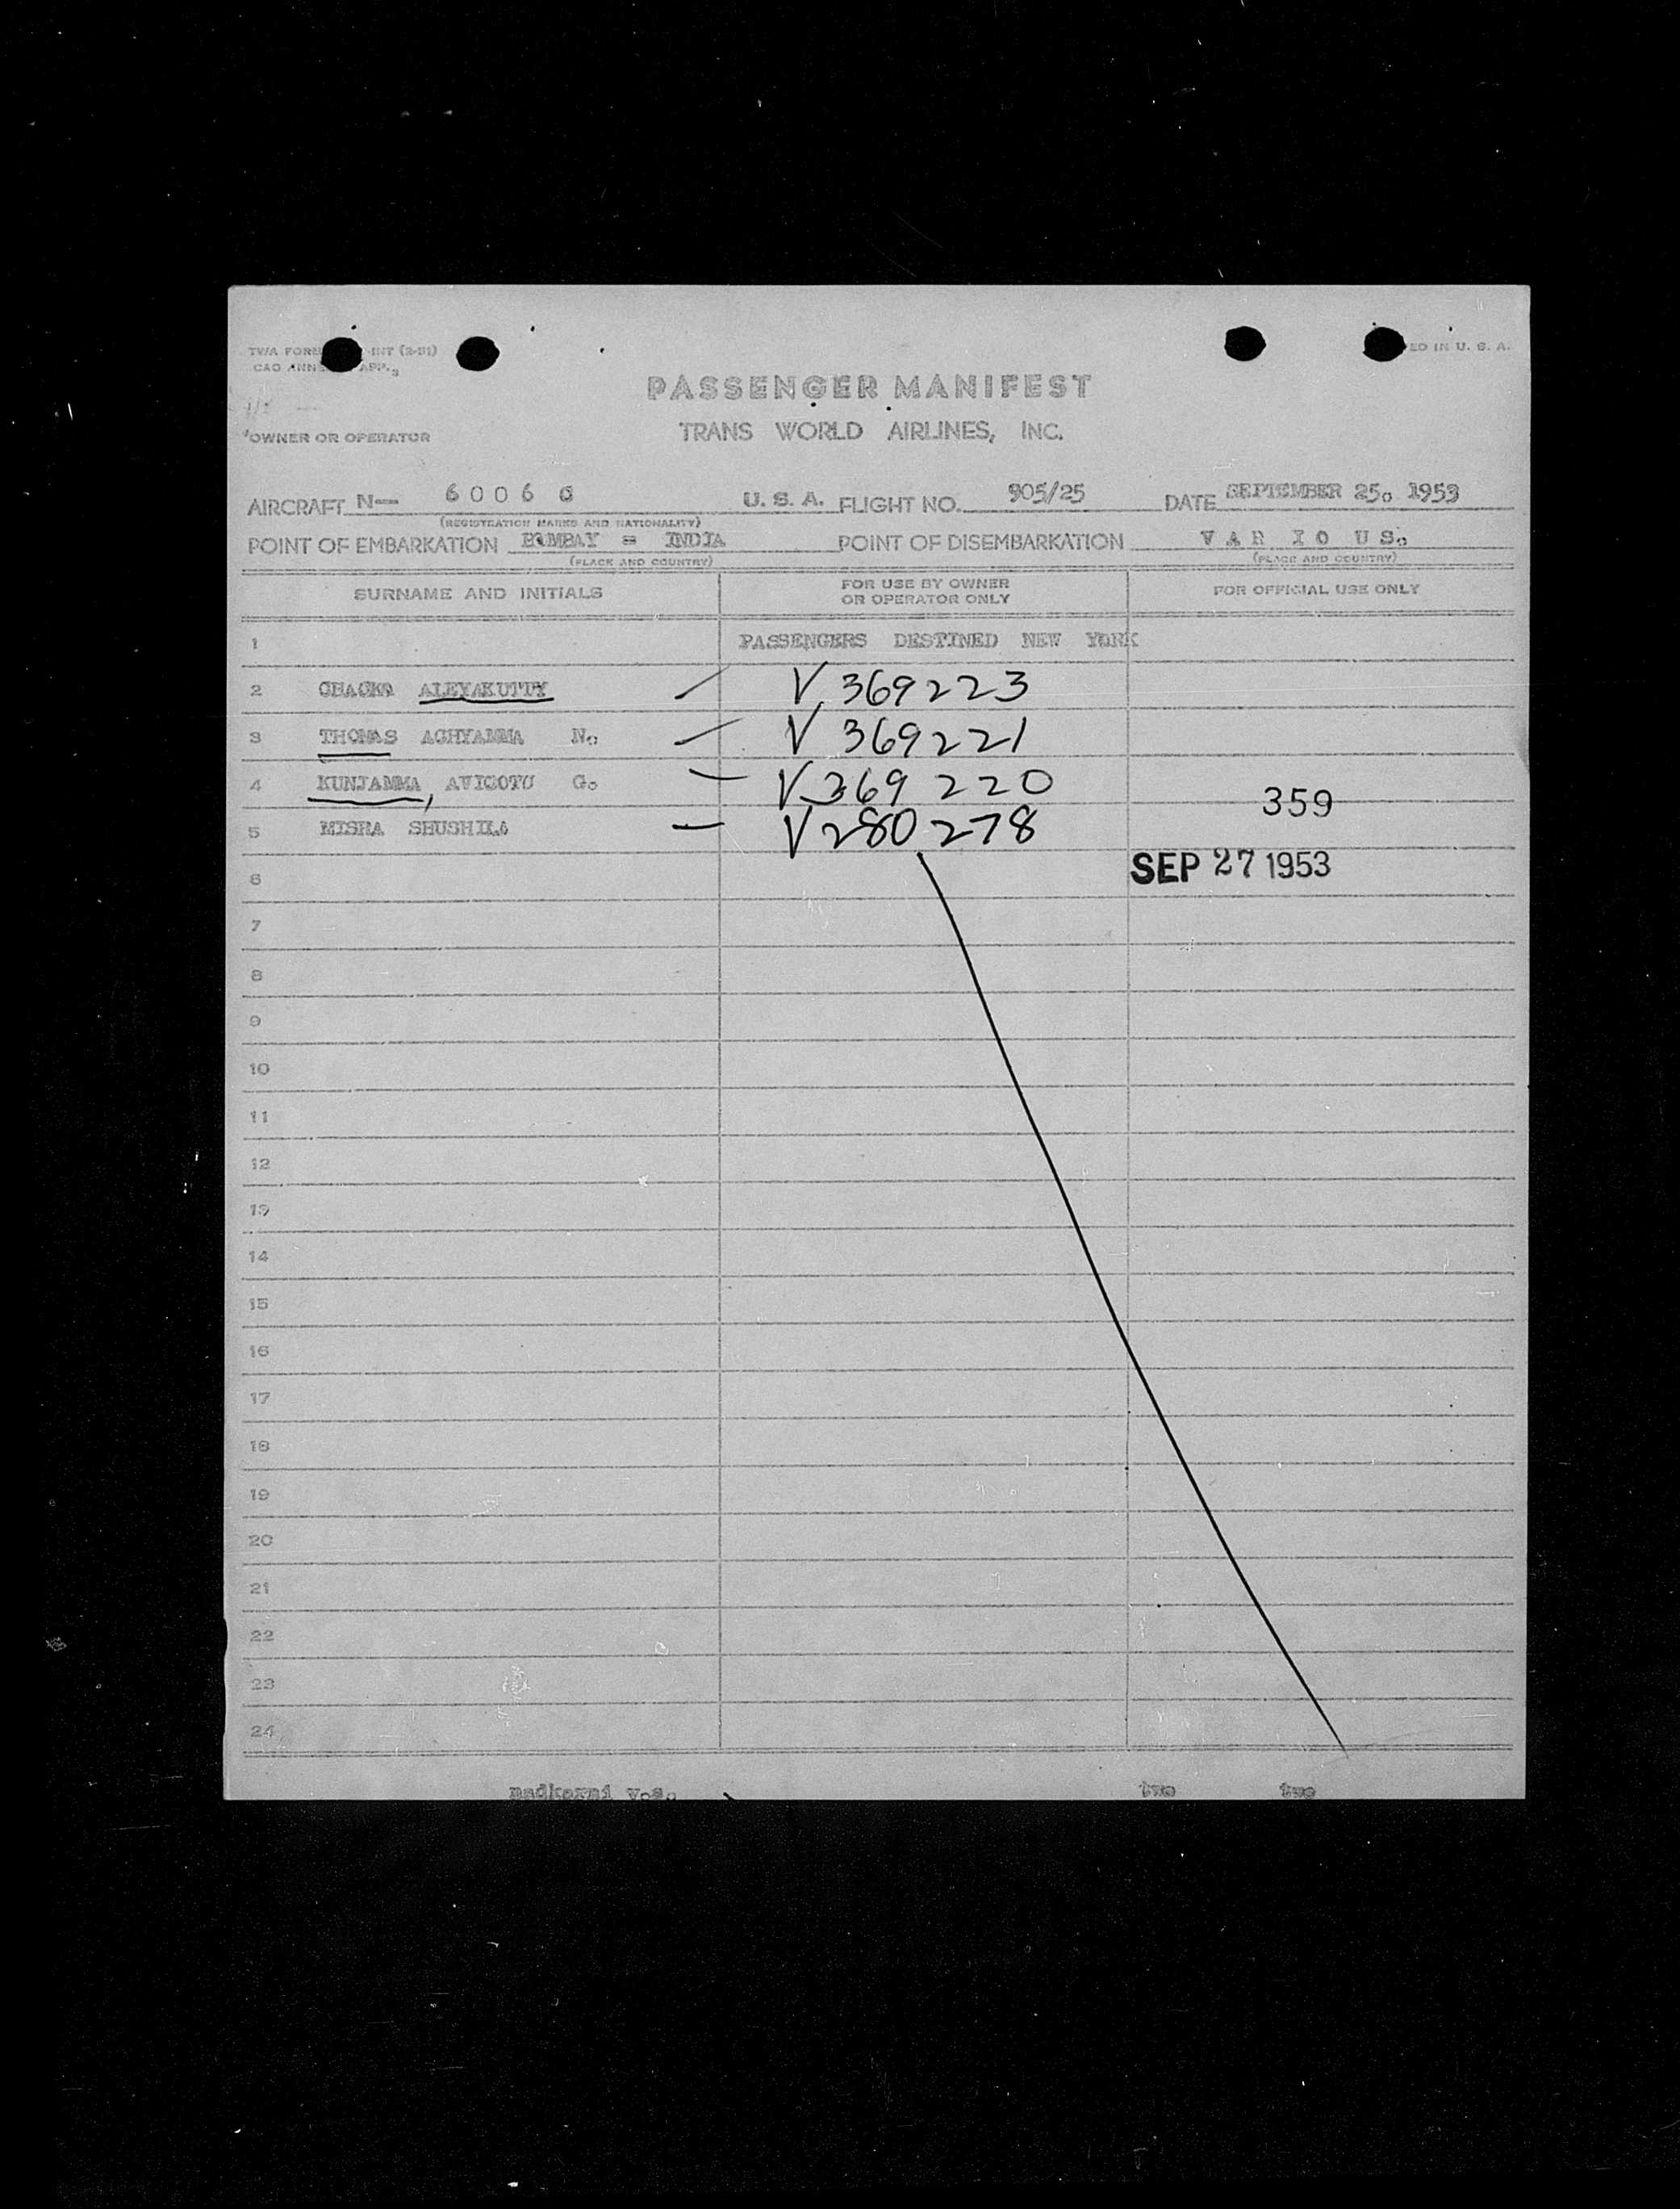 TWA FORM INT (2-51)
ED IN U. S. A.
PASSENGER MANIFEST
OWNER OR OPERATOR
TRANS WORLD AIRLINES, INC.
AIRCRAFT N— 6006 C U. S. A. FLIGHT NO. 905/25 DATE SEPTEMBER 25. 1953
(REGISTRATION MARKS AND NATIONALITY)
POINT OF EMBARKATION BOMBAY = INDIA POINT OF DISEMBARKATION VAR IO US.
(PLACE AND COUNTRY) (PLACE AND COUNTRY)
SURNAME AND INITIALS FOR USE BY OWNER OR OPERATOR ONLY FOR OFFICIAL USE ONLY
1 PASSENGERS DESTINED NEW YORK
2 CHACKO ALEYAKUTTY V 369223
3 THOMAS ACHYAMMA N. V 369221
4 KUNJAMMA, G. V 369 220
359
5 MISRA SHUSHILA V 280278
6 SEP 27 1953
7
8
9
10
11
12
13
14
15
16
17
18
19
20
21
22
23
24
nadkarni v.s. twe twe